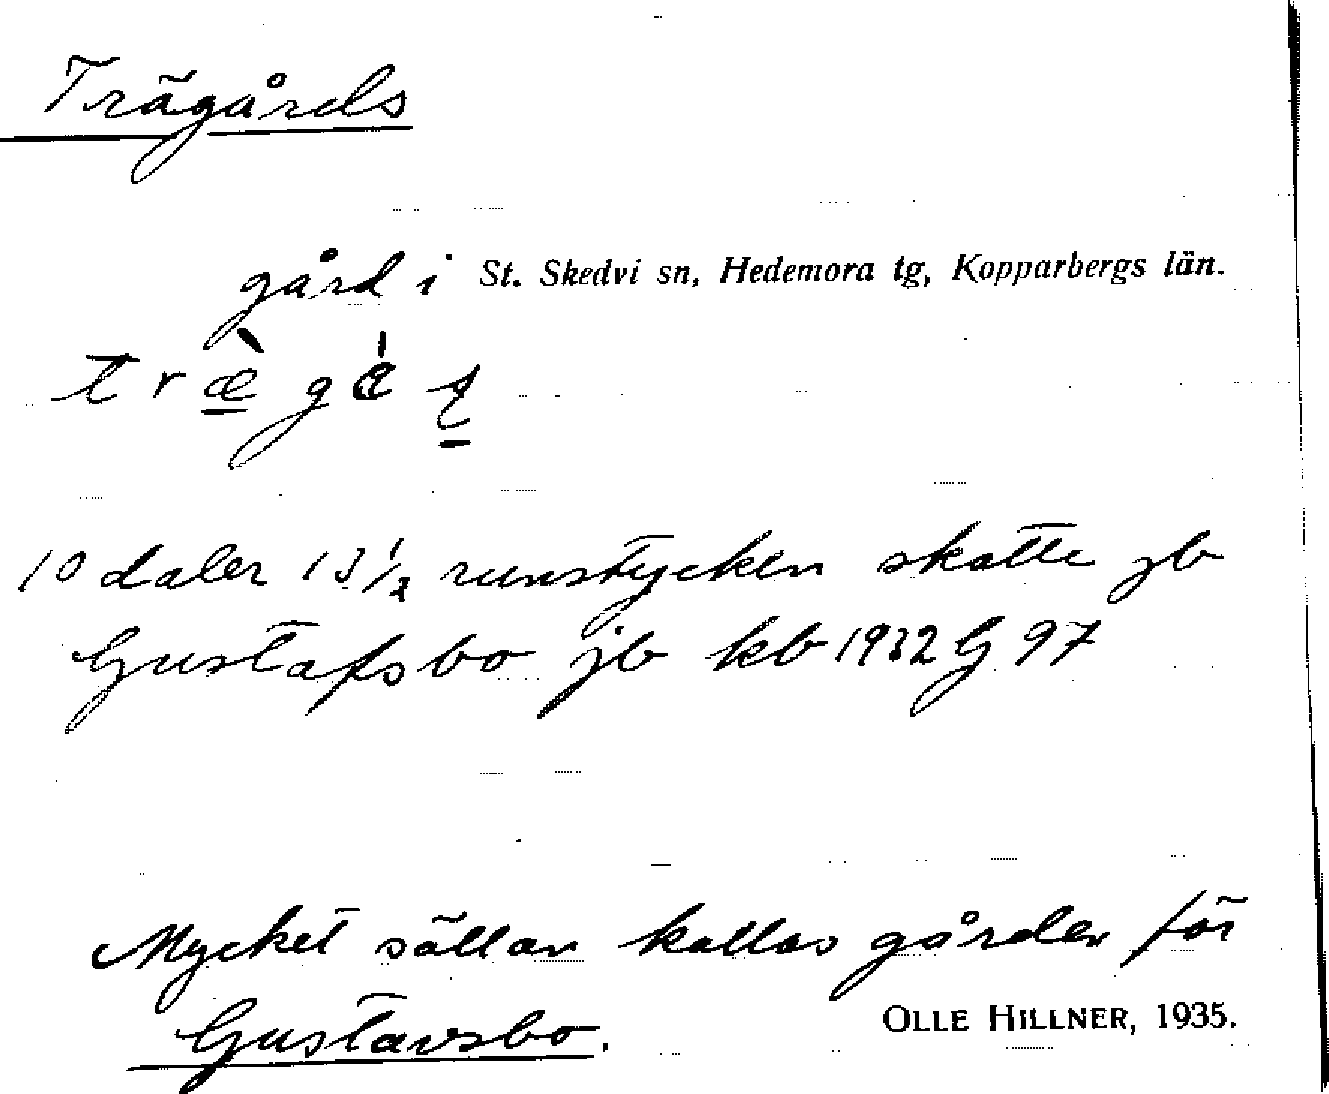 Trägårds
gård i St. Skedvi sn, Hedemora tg, Kopparbergs län.
10 daler 13 1/2 runstycken skatte jb
Gustafsbo jb kb 1932 G 97
Mycket sällan kallas gården för
Gustavsbo.
OLLE HILLNER, 1935.